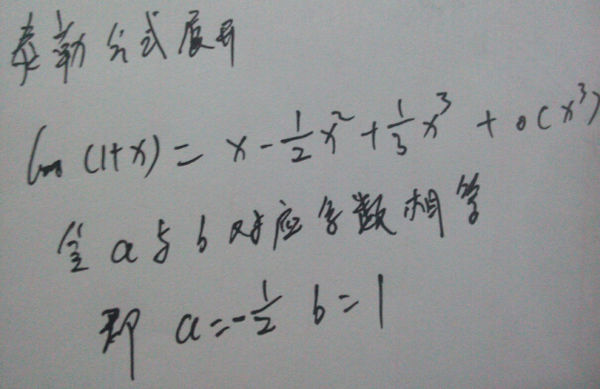 泰勒公式展开
ln(1+x) = x - 1/2 x² + 1/3 x³ + o(x³)
令 a 与 b 对应系数相等
即 a = -1/2 b = 1